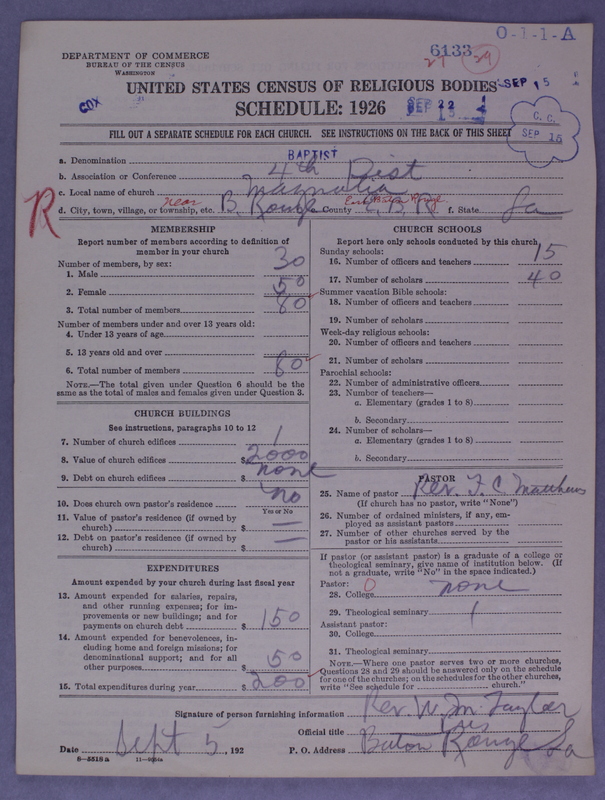 O-1-1-A
6133
29
DEPARTMENT OF COMMERCE
BUREAU OF THE CENSUS
WASHINGTON
UNITED STATES CENSUS OF RELIGIOUS BODIES
SEP 15
COX
SCHEDULE: 1926
SEP 22
C. C.
SEP 15
FILL OUT A SEPARATE SCHEDULE FOR EACH CHURCH. SEE INSTRUCTIONS ON THE BACK OF THIS SHEET
a. Denomination BAPTIST
b. Association or Conference 4th Dist
c. Local name of church Magnolia
d. City, town, village, or township, etc. near B. Rouge e. County E. B. R. East Baton Rouge f. State La
R
MEMBERSHIP
Report number of members according to definition of
member in your church
Number of members, by sex:
1. Male 30
2. Female 50
3. Total number of members 80
Number of members under and over 13 years old:
4. Under 13 years of age
5. 13 years old and over
6. Total number of members 80
NOTE.—The total given under Question 6 should be the
same as the total of males and females given under Question 3.
CHURCH BUILDINGS
See instructions, paragraphs 10 to 12
7. Number of church edifices 1
8. Value of church edifices $ 2000
9. Debt on church edifices $ none
10. Does church own pastor's residence no
Yes or No
11. Value of pastor's residence (if owned by
church) $ —
12. Debt on pastor's residence (if owned by
church) $ —
EXPENDITURES
Amount expended by your church during last fiscal year
13. Amount expended for salaries, repairs,
and other running expenses; for im-
provements or new buildings; and for
payments on church debt $ 150
14. Amount expended for benevolences, in-
cluding home and foreign missions; for
denominational support; and for all
other purposes $ 50
15. Total expenditures during year $ 200
CHURCH SCHOOLS
Report here only schools conducted by this church
Sunday schools:
16. Number of officers and teachers 15
17. Number of scholars 40
Summer vacation Bible schools:
18. Number of officers and teachers
19. Number of scholars
Week-day religious schools:
20. Number of officers and teachers
21. Number of scholars
Parochial schools:
22. Number of administrative officers
23. Number of teachers—
a. Elementary (grades 1 to 8)
b. Secondary
24. Number of scholars—
a. Elementary (grades 1 to 8)
b. Secondary
PASTOR
25. Name of pastor Rev. F. C. Matthews
(If church has no pastor, write "None")
26. Number of ordained ministers, if any, em-
ployed as assistant pastors
27. Number of other churches served by the
pastor or his assistants
If pastor (or assistant pastor) is a graduate of a college or
theological seminary, give name of institution below. (If
not a graduate, write "No" in the space indicated.)
Pastor: 0
28. College none
29. Theological seminary
Assistant pastor:
30. College
31. Theological seminary
NOTE.—Where one pastor serves two or more churches,
Questions 28 and 29 should be answered only on the schedule
for one of the churches; on the schedules for the other churches,
write "See schedule for church."
Signature of person furnishing information Rev. W. M. Taylor
Official title
Date Sept 5, 192 P. O. Address Baton Rouge La
8—5518a